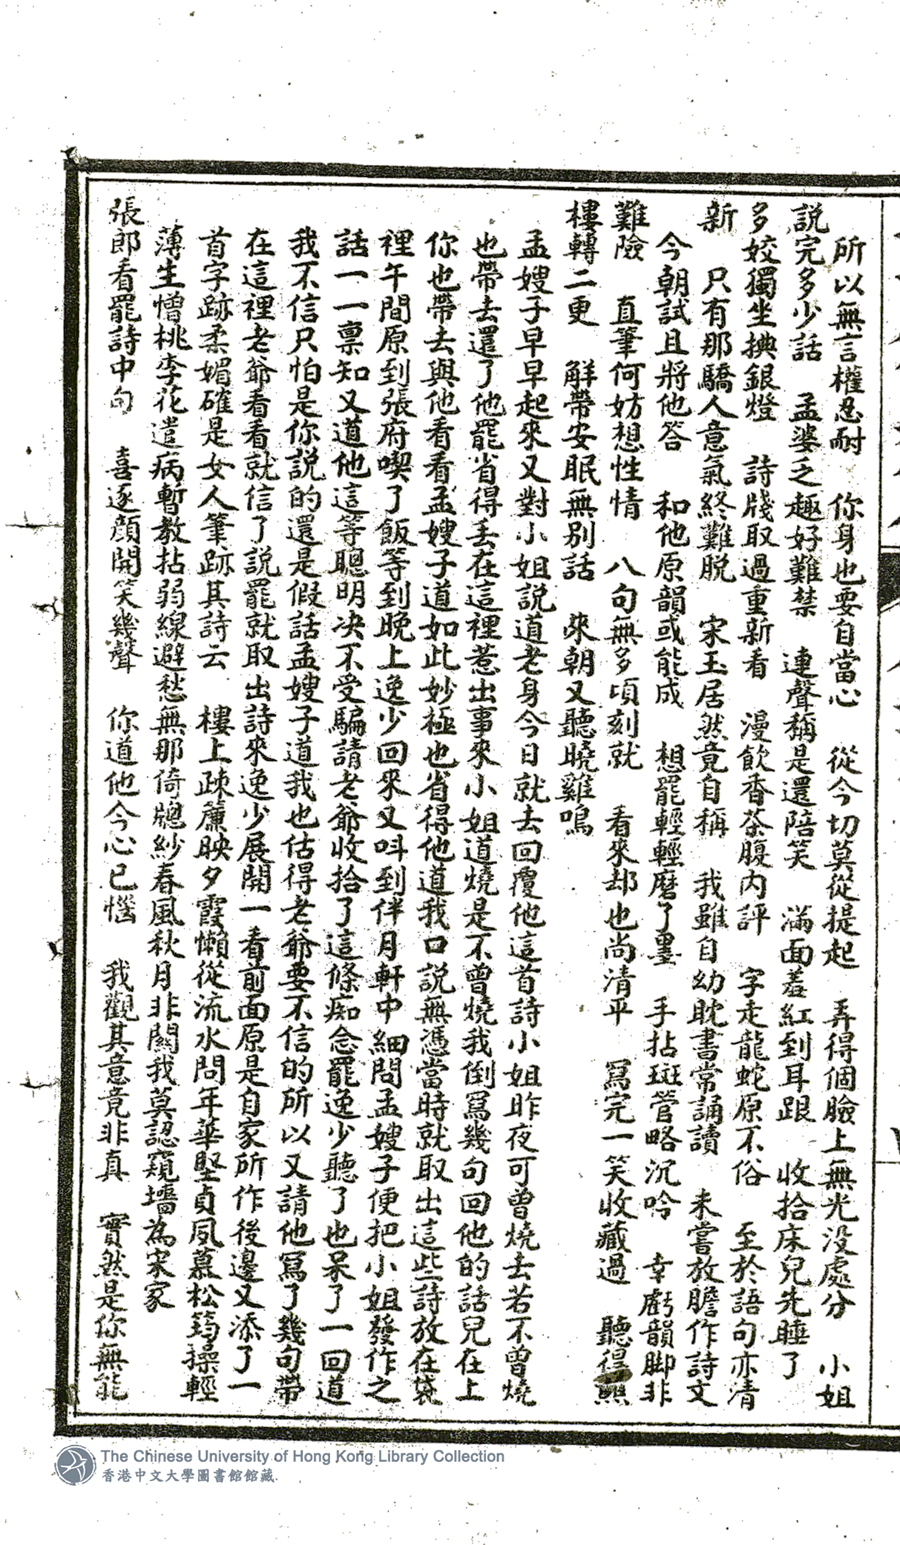 所以無言權忍耐　你身也要自當心　從今切莫從提起　弄得個臉上無光没處分　小姐
説完多少話　孟婆之趣好難禁　連聲稱是還陪笑　滿面羞紅到耳跟　收拾床兒先睡了
多姣獨坐㨪銀燈　詩牋取過重新看　漫飲香茶腹内評　字走龍蛇原不俗　至於語句亦清
新　只有那驕人意氣終難脱　宋玉居然竟自稱　我雖自幼耽書常誦讀　未嘗放膽作詩文
今朝試且將他答　和他原韻或能成　想罷輕輕磨了墨　手拈斑管略沉吟　幸虧韻脚非
難險　直筆何妨想性情　八句無多頃刻就　看來却也尚清平　寫完一笑收藏過　聽得譙
樓轉二更　解帶安眠無別話　來朝又聽曉雞鳴
孟嫂子早早起來又對小姐説道老身今日就去回覆他這首詩小姐昨夜可曾燒去若不曾燒
也帶去還了他罷省得丢在這裡惹出事來小姐道燒是不曾燒我倒寫幾句回他的話兒在上
你也帶去與他看看孟嫂子道如此妙極也省得他道我口説無憑當時就取出這些詩放在袋
裡午間原到張府喫了飯等到晚上逸少回來又呌到伴月軒中細問孟嫂子便把小姐發作之
話一一禀知又道他這等聰明决不受騙請老爺收拾了這條痴念罷逸少聽了也呆了一回道
我不信只怕是你説的還是假話孟嫂子道我也估得老爺要不信的所以又請他寫了幾句帶
在這裡老爺看看就信了説罷就取出詩來逸少展開一看前面原是自家所作後邊又添了一
首字跡柔媚確是女人筆跡其詩云　樓上疎簾映夕霞懶從流水問年華堅貞夙慕松筠操輕
薄生憎桃李花遣病暫教拈弱線避愁無那倚牕紗春風秋月非關我莫認窺墻為宋家
張郎看罷詩中句　喜逐顔開笑幾聲　你道他今心已惱　我觀其意竟非真　實然是你無能
The Chinese University of Hong Kong Library Collection
香港中文大學圖書館館藏